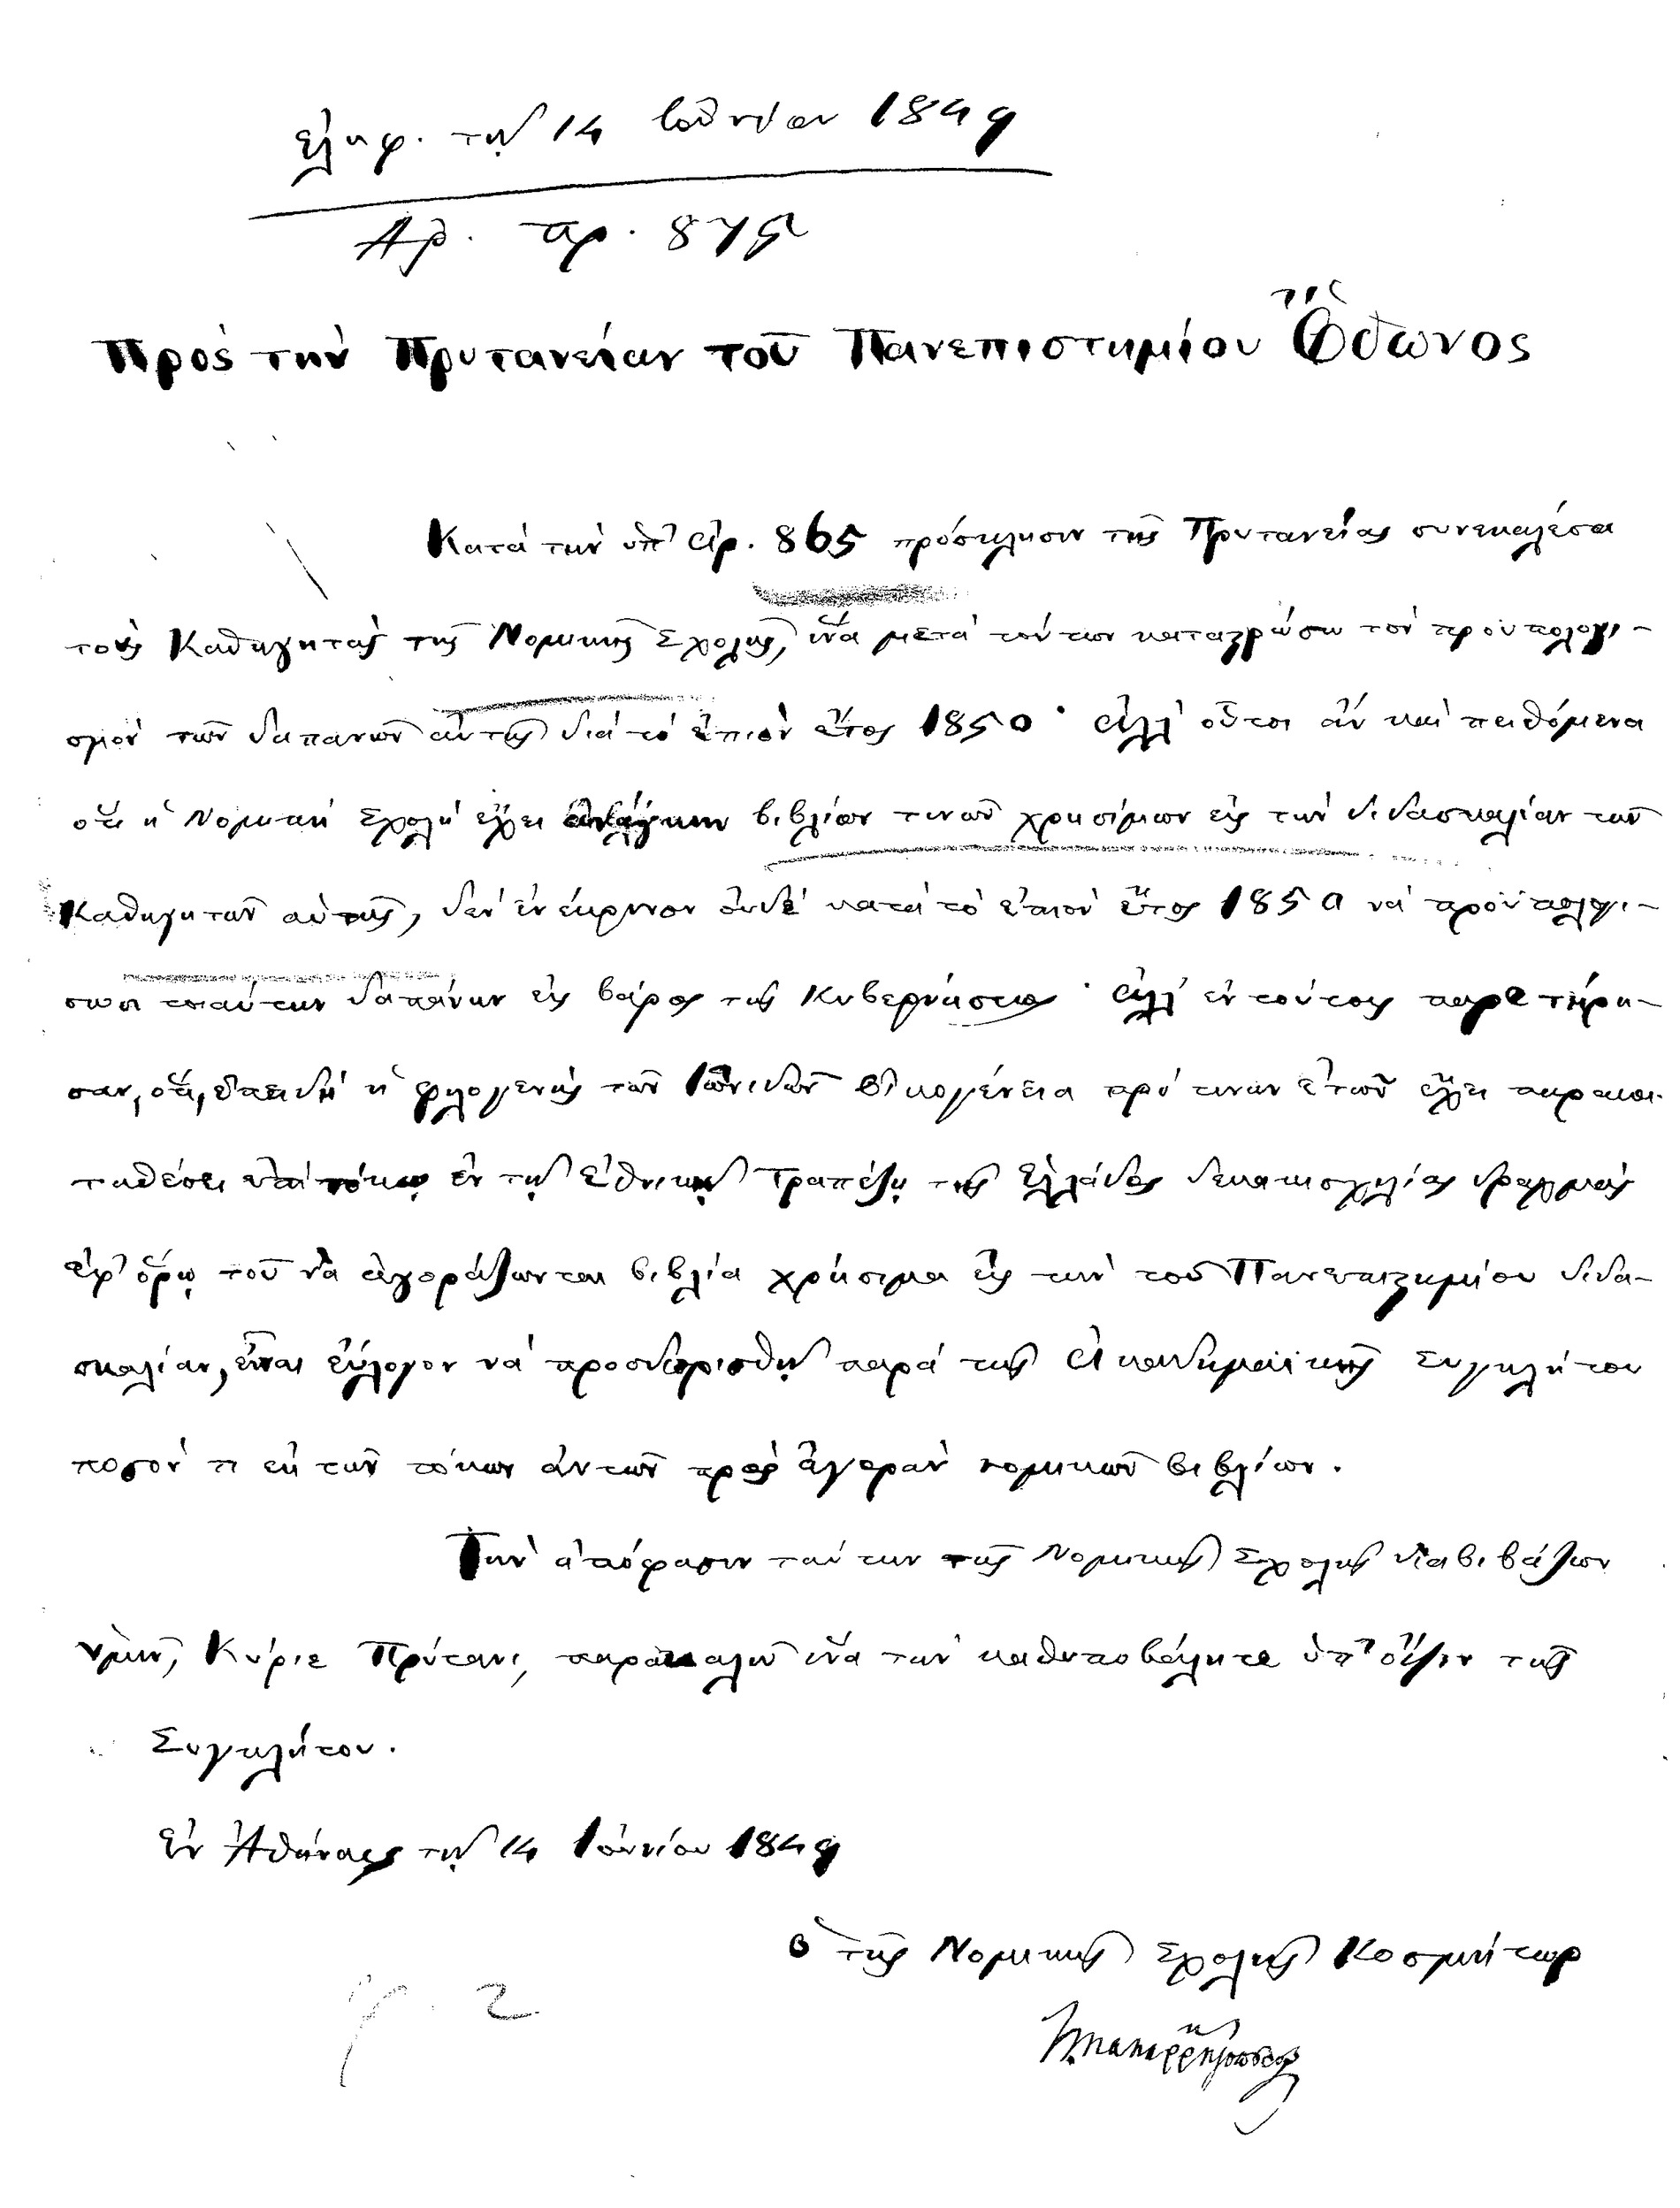 ἐλήφ. τῇ 14 Ἰουνίου 1849
Ἀρ. πρ. 875
Πρὸς τὴν Πρυτανείαν τοῦ Πανεπιστημίου Ὄθωνος
Κατὰ τὴν ὑπ' ἀρ. 865 πρόσκλησιν τῆς Πρυτανείας συνεκάλεσα
τοὺς Καθηγητὰς τῆς Νομικῆς Σχολῆς, ἵνα μετὰ τούτων καταστρώσω τὸν προϋπολογι-
σμὸν τῶν δαπανῶν αὐτῆς διὰ τὸ ἐπιὸν ἔτος 1850· ἀλλ' οὗτοι ἂν καὶ πειθόμενοι
ὅτι ἡ Νομικὴ Σχολὴ ἔχει ἀνάγκην βιβλίων τινῶν χρησίμων εἰς τὴν διδασκαλίαν τῶν
Καθηγητῶν αὐτῆς, δὲν ἐνέκρινον οὐδὲ κατὰ τὸ ἐπιὸν ἔτος 1850 νὰ προϋπολογί-
σωσι τοιαύτην δαπάνην εἰς βάρος τῆς Κυβερνήσεως· ἀλλ' ἐν τούτοις παρετήρη-
σαν, ὅτι, ἐπειδὴ ἡ φιλογενὴς τῶν Ἰωνιδῶν οἰκογένεια πρό τινων ἐτῶν ἔχει παρακα-
ταθέσει ἐπὶ τόκῳ ἐν τῇ Ἐθνικῇ Τραπέζῃ τῆς Ἑλλάδος δεκακισχιλίας δραχμὰς
ἐφ' ὅρῳ τοῦ νὰ ἀγοράζωνται βιβλία χρήσιμα εἰς τὴν τοῦ Πανεπιστημίου διδα-
σκαλίαν, εἶναι εὔλογον νὰ προσδιορισθῇ παρὰ τῆς Ἀκαδημαϊκῆς Συγκλήτου
ποσόν τι ἐκ τῶν τόκων αὐτῶν πρὸς ἀγορὰν νομικῶν βιβλίων.
Τὴν ἀπόφασιν ταύτην τῆς Νομικῆς Σχολῆς διαβιβάζων
ὑμῖν, Κύριε Πρύτανι, παρακαλῶ ἵνα τὴν καθυποβάλητε ὑπ' ὄψιν τῆς
Συγκλήτου.
Ἐν Ἀθήναις τῇ 14 Ἰουνίου 1849
ὁ τῆς Νομικῆς Σχολῆς Κοσμήτωρ